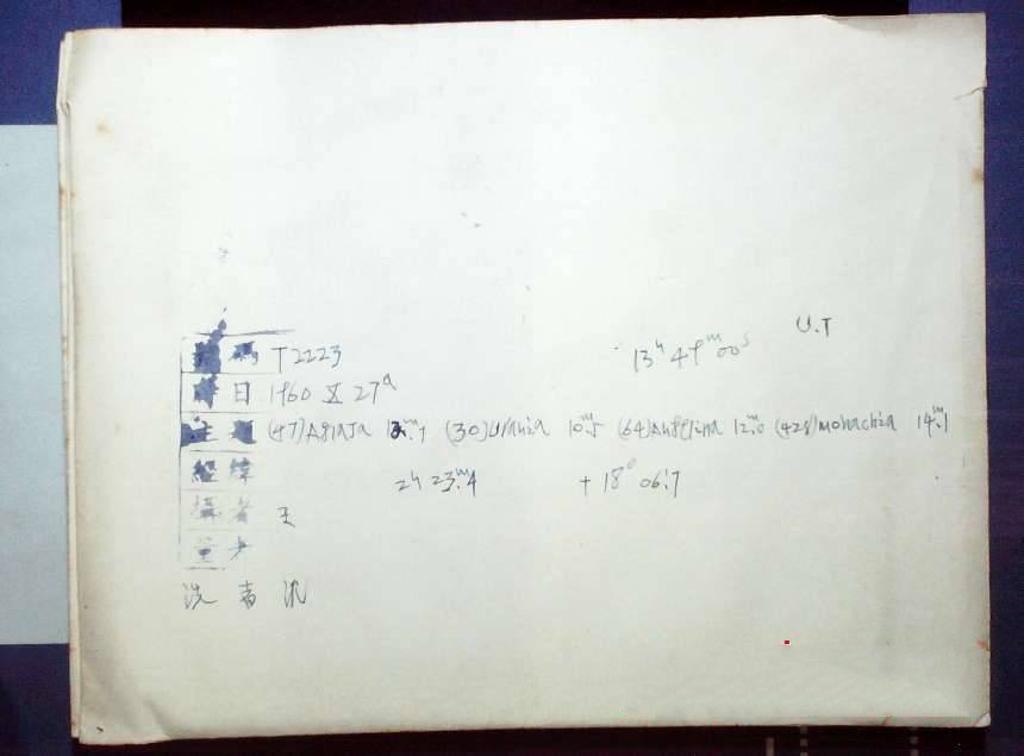 U.T
號碼 T2223 13ʰ 49ᵐ 00ˢ
時日 1960 X 27ᵈ
主題 (47)Aglaja 13ᵐ.1 (30)Urania 10ᵐ.5 (64)Angelina 12ᵐ.0 (428)Monachia 14ᵐ.1
經緯 2ʰ 23ᵐ.4 + 18° 06'.7
攝者 王
量者
洗者